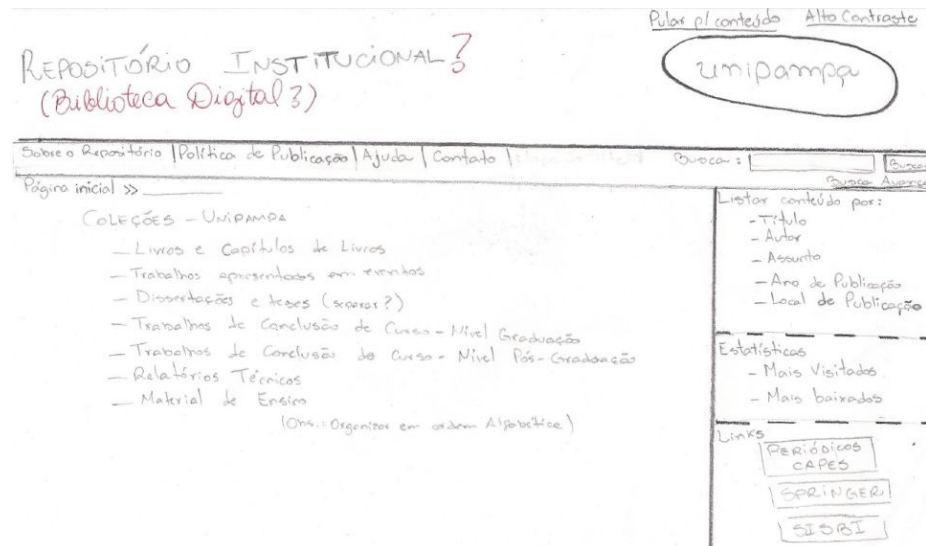 Pular p/ conteúdo Alto Contraste
REPOSITÓRIO INSTITUCIONAL?
(Biblioteca Digital?)
unipampa
Sobre o Repositório | Política de Publicação | Ajuda | Contato |
Busca: Buscar
Busca Avança
Página inicial »
COLEÇÕES - UNIPAMPA
- Livros e Capítulos de Livros
- Trabalhos apresentados em eventos
- Dissertações e teses (separar?)
- Trabalhos de Conclusão de Curso - Nível Graduação
- Trabalhos de Conclusão de Curso - Nível Pós-Graduação
- Relatórios Técnicos
- Material de Ensino
(Obs.: Organizar em ordem Alfabética)
Listar conteúdo por:
- Título
- Autor
- Assunto
- Ano de Publicação
- Local de Publicação
Estatísticas
- Mais Visitados
- Mais baixados
Links
PERIÓDICOS
CAPES
SPRINGER
SISBI